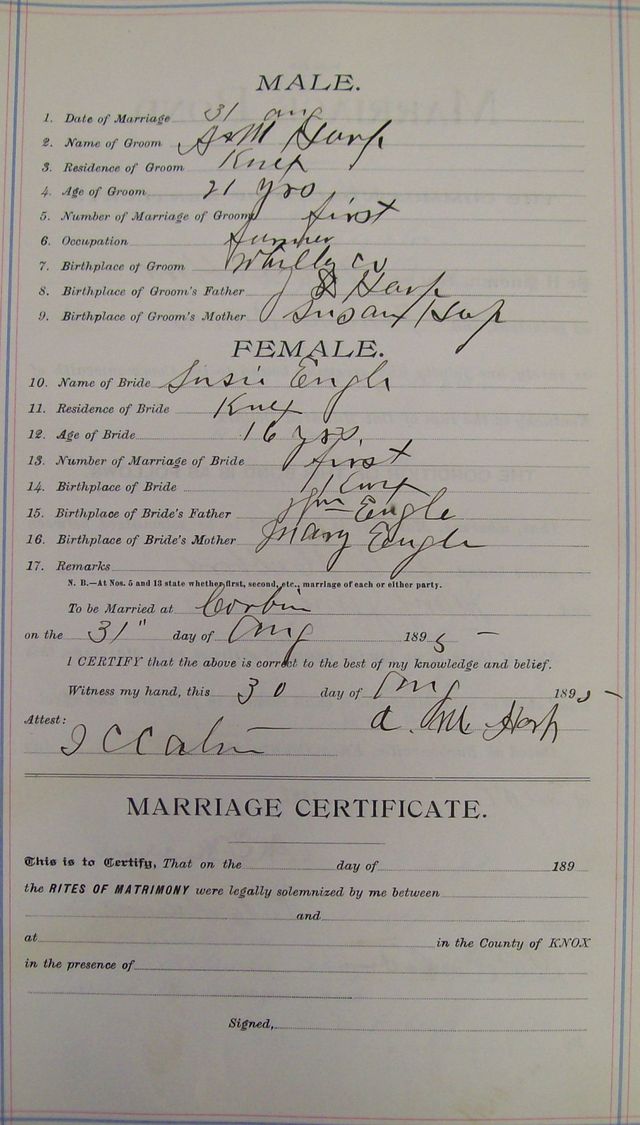 MALE.
1. Date of Marriage 31 Aug
2. Name of Groom A M Harp
3. Residence of Groom Knox
4. Age of Groom 21 yrs
5. Number of Marriage of Groom first
6. Occupation farmer
7. Birthplace of Groom Whitly Co
8. Birthplace of Groom's Father Harp
9. Birthplace of Groom's Mother Susan Harp
FEMALE.
10. Name of Bride Susie Engle
11. Residence of Bride Knox
12. Age of Bride 16 yrs
13. Number of Marriage of Bride first
14. Birthplace of Bride Knox
15. Birthplace of Bride's Father Wm Engle
16. Birthplace of Bride's Mother Mary Engle
17. Remarks
N. B.—At Nos. 5 and 13 state whether first, second, etc., marriage of each or either party.
To be Married at Corbin
on the 31" day of Aug 1895
I CERTIFY that the above is correct to the best of my knowledge and belief.
Witness my hand, this 30 day of Aug 1895
Attest: A. M. Harp
MARRIAGE CERTIFICATE.
This is to Certify, That on the day of 189
the RITES OF MATRIMONY were legally solemnized by me between
and
at in the County of KNOX
in the presence of
Signed,